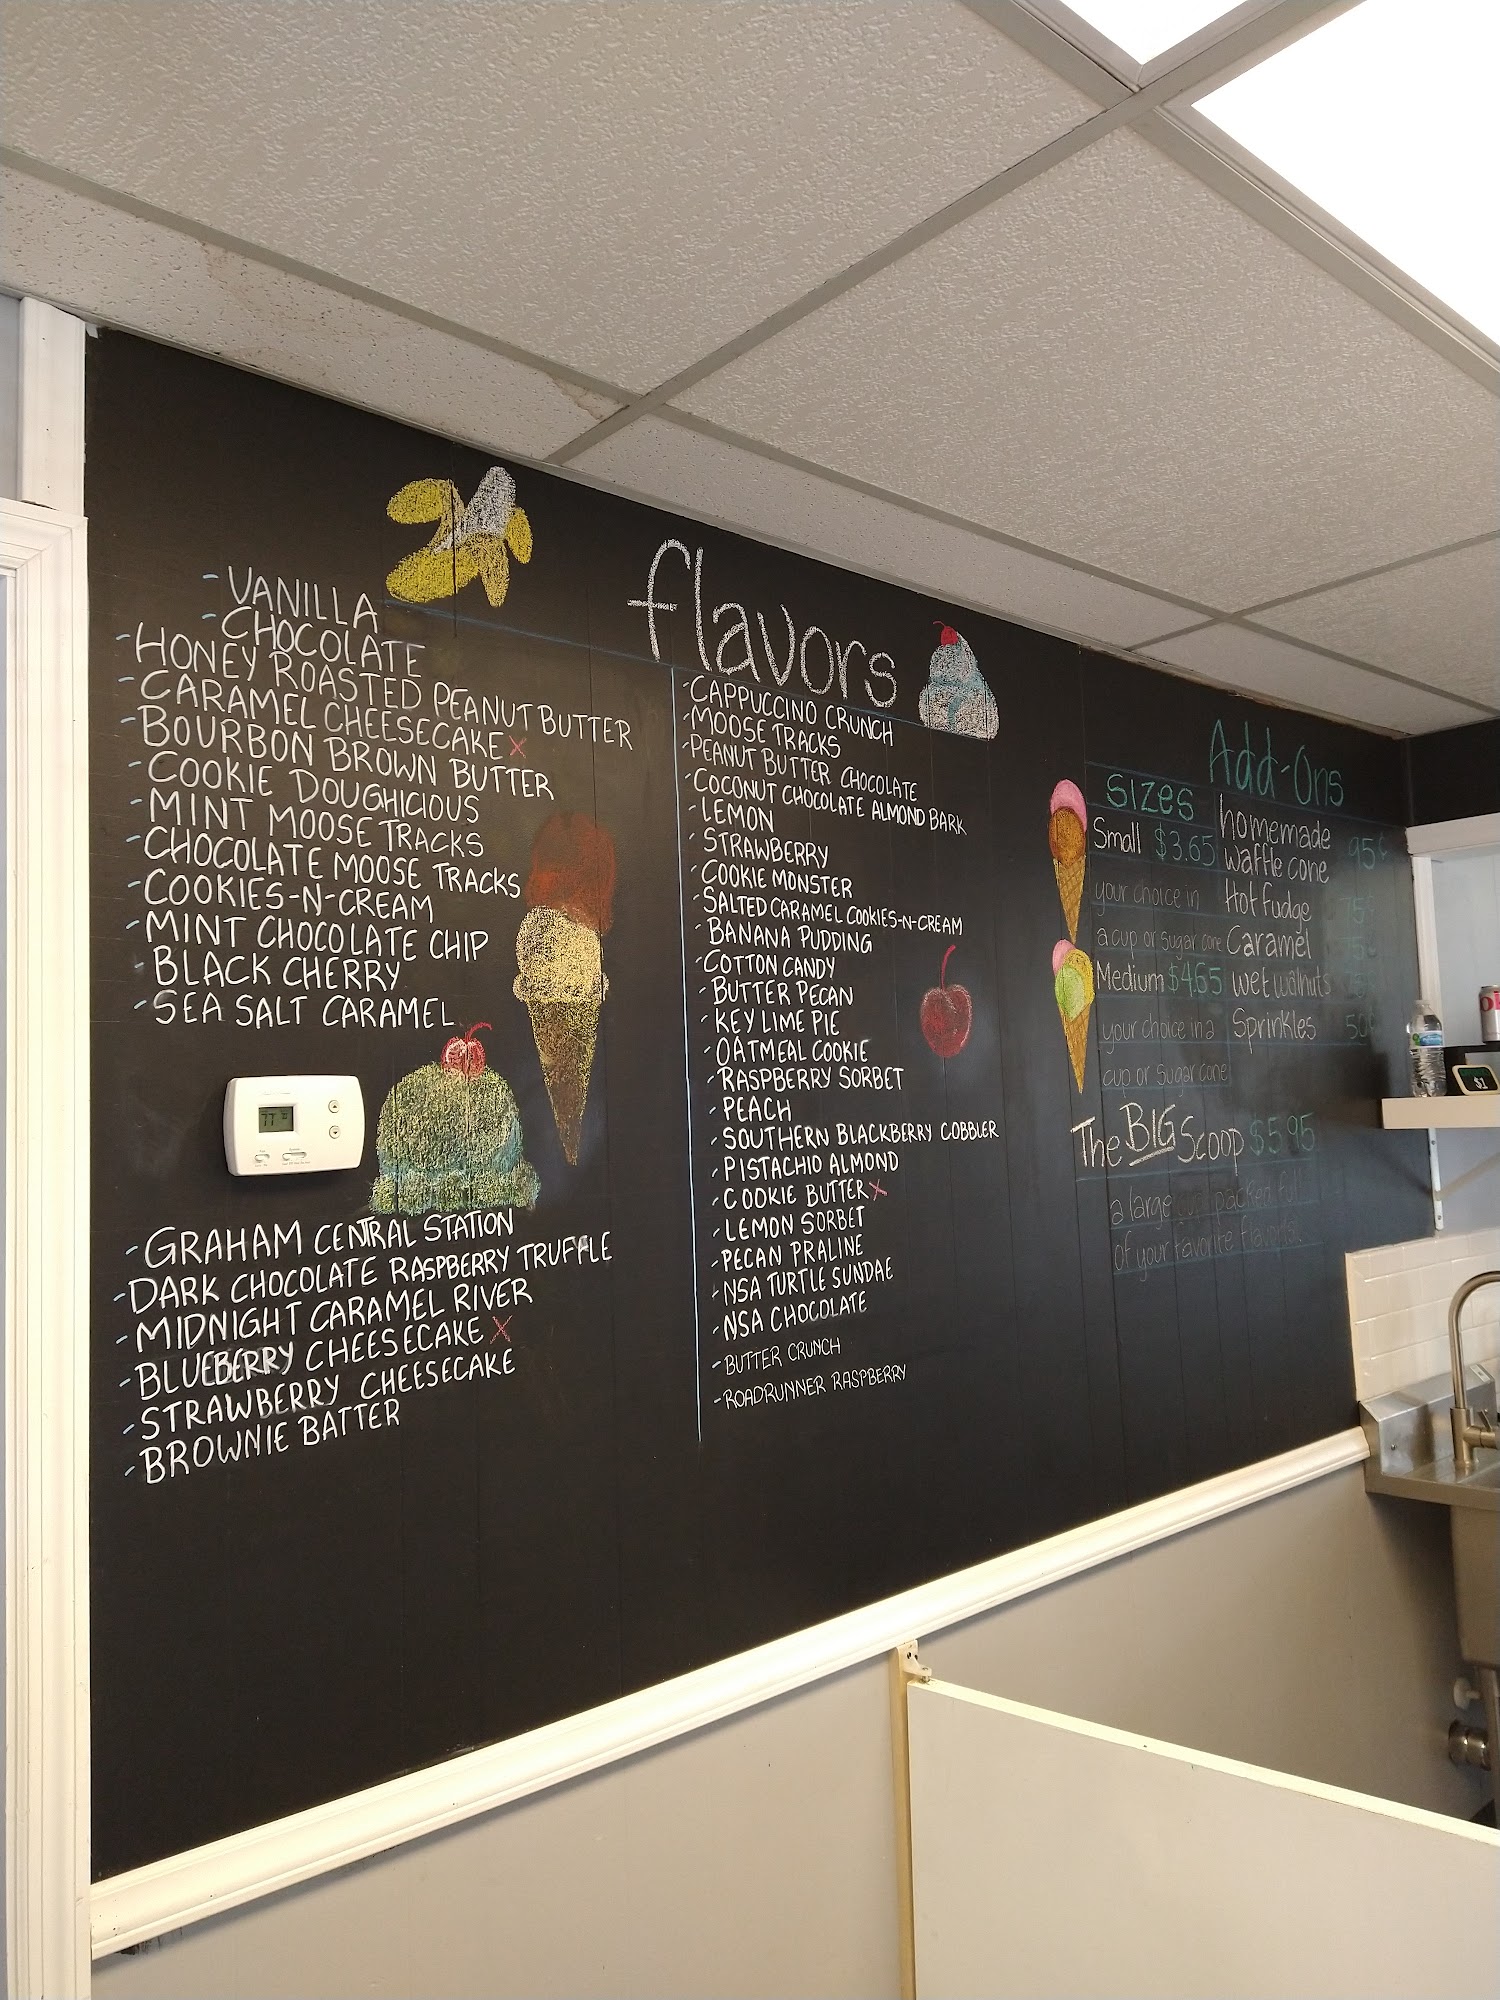 flavors
- VANILLA
- CHOCOLATE
- HONEY ROASTED PEANUT BUTTER
- CARAMEL CHEESECAKE X
- BOURBON BROWN BUTTER
- COOKIE DOUGHICIOUS
- MINT MOOSE TRACKS
- CHOCOLATE MOOSE TRACKS
- COOKIES-N-CREAM
- MINT CHOCOLATE CHIP
- BLACK CHERRY
- SEA SALT CARAMEL
77
- GRAHAM CENTRAL STATION
- DARK CHOCOLATE RASPBERRY TRUFFLE
- MIDNIGHT CARAMEL RIVER
- BLUEBERRY CHEESECAKE X
- STRAWBERRY CHEESECAKE
- BROWNIE BATTER
- CAPPUCCINO CRUNCH
- MOOSE TRACKS
- PEANUT BUTTER CHOCOLATE
- COCONUT CHOCOLATE ALMOND BARK
- LEMON
- STRAWBERRY
- COOKIE MONSTER
- SALTED CARAMEL COOKIES-N-CREAM
- BANANA PUDDING
- COTTON CANDY
- BUTTER PECAN
- KEY LIME PIE
- OATMEAL COOKIE
- RASPBERRY SORBET
- PEACH
- SOUTHERN BLACKBERRY COBBLER
- PISTACHIO ALMOND
- COOKIE BUTTER X
- LEMON SORBET
- PECAN PRALINE
- NSA TURTLE SUNDAE
- NSA CHOCOLATE
- BUTTER CRUNCH
- ROADRUNNER RASPBERRY
Sizes
Small $3.65
your choice in
a cup or sugar cone
Medium $4.65
your choice in a
cup or sugar cone
The BIG Scoop $5.95
a large cup packed full
of your favorite flavors!
Add-Ons
homemade
waffle cone 95¢
Hot fudge 75¢
Caramel 75¢
wet walnuts
Sprinkles 50¢
$1